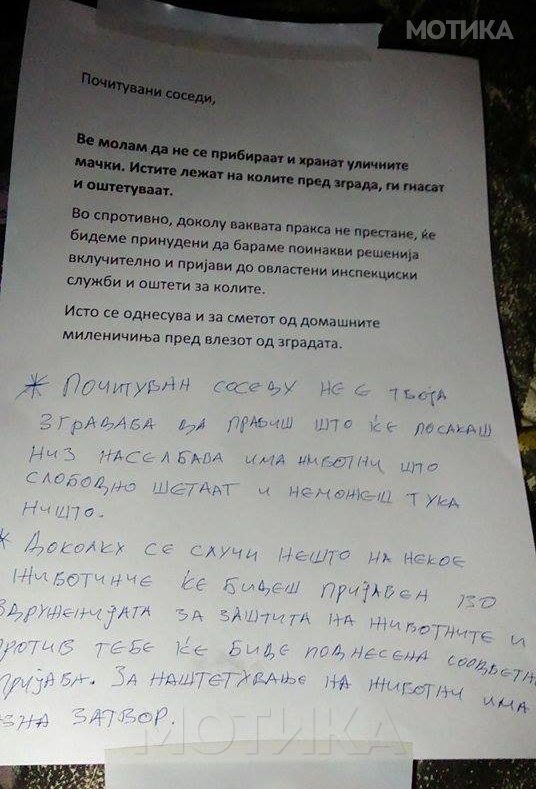 МОТИКА
Почитувани соседи,
Ве молам да не се прибираат и хранат уличните
мачки. Истите лежат на колите пред зграда, ги гнасат
и оштетуваат.
Во спротивно, доколу ваквата пракса не престане, ќе
бидеме принудени да бараме поинакви решенија
вклучително и пријави до овластени инспекциски
служби и оштети за колите.
Исто се однесува и за сметот од домашните
миленичиња пред влезот од зградата.
* ПОЧИТУВАН СОСЕДУ НЕ Е ТВОЈА
ЗГРАДАВА ДА ПРАВИШ ШТО ЌЕ ПОСАКАШ
НИЗ НАСЕЛБАВА ИМА ЖИВОТНИ ШТО
СЛОБОДНО ШЕТААТ И НЕМОЖЕШ ТУКА
НИШТО.
* ДОКОЛКУ СЕ СЛУЧИ НЕШТО НА НЕКОЕ
ЖИВОТИНЧЕ ЌЕ БИДЕШ ПРИЈАВЕН ВО
ЗДРУЖЕНИЈАТА ЗА ЗАШТИТА НА ЖИВОТНИТЕ И
ПРОТИВ ТЕБЕ ЌЕ БИДЕ ПОДНЕСЕНА СООДВЕТНА
ПРИЈАВА. ЗА НАШТЕТУВАЊЕ НА ЖИВОТНИ ИМА
ЗАТВОР.
МОТИКА